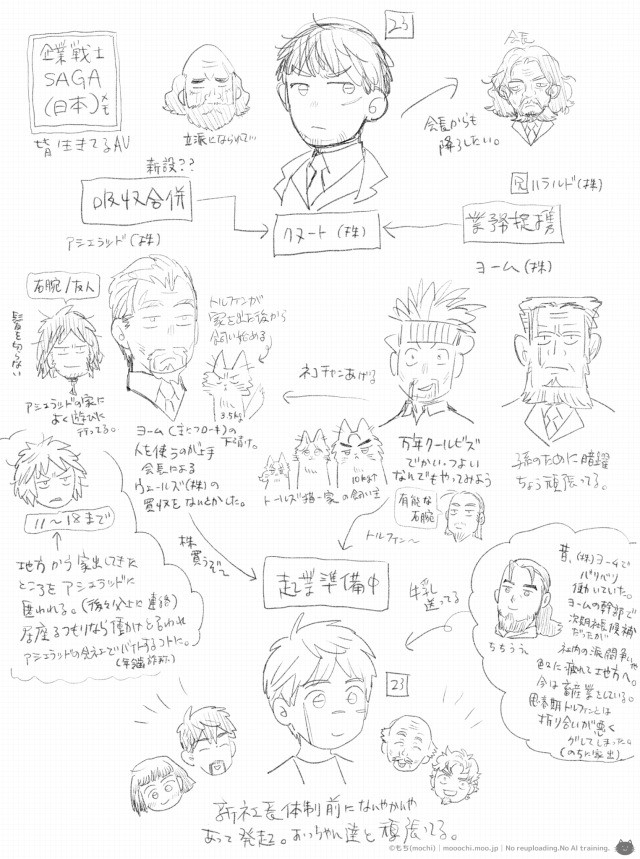 23
企業戦士
SAGA
(日本)メモ
皆生きてるAU
立派になられて…
会長
会長からも
降ろしたい。
新設??
吸収合併
兄 ハラルド(株)
アシェラッド(株)
クヌート(株)
業務提携
ヨーム(株)
右腕/友人
髪を切らない
トルフィンが
家を出た後から
飼い始める
3.5kg
アシェラッドの家に
よく遊びに
行ってる。
ネコチャンあげる
ヨーム(主にフローキ)の
下請け。
人を使うのが上手
会長による
ウェールズ(株)の
買収をなんとかした。
万年クールビズ
でかい、つよい
なんでもやってみよう
孫のために暗躍
ちょう頑張ってる。
10kg↑
トールズ猫一家の飼い主
有能な
右腕
11〜18まで
地方から家出してきた
ところをアシェラッドに
匿われる。(後々父上に連絡)
居座るつもりなら働けと言われ
アシェラッドの会社でバイトすることに。
(年齢詐称)
株
買うぞ〜
トルフィン〜
起業準備中
牛乳
送ってる
昔、(株)ヨームで
バリバリ
働いていた。
ヨームの幹部で
次期社長候補
だったが
社内の派閥争い
に疲れて地方へ。
今は畜産業をしている。
思春期トルフィンとは
折り合いが悪く
グレてしまった。
(のちに家出)
ちちうえ
23
新社長体制前になんやかんや
あって発起。おっちゃん達と頑張ってる。
©もち(mochi) | mooochi.moo.jp | No reuploading.No AI training.